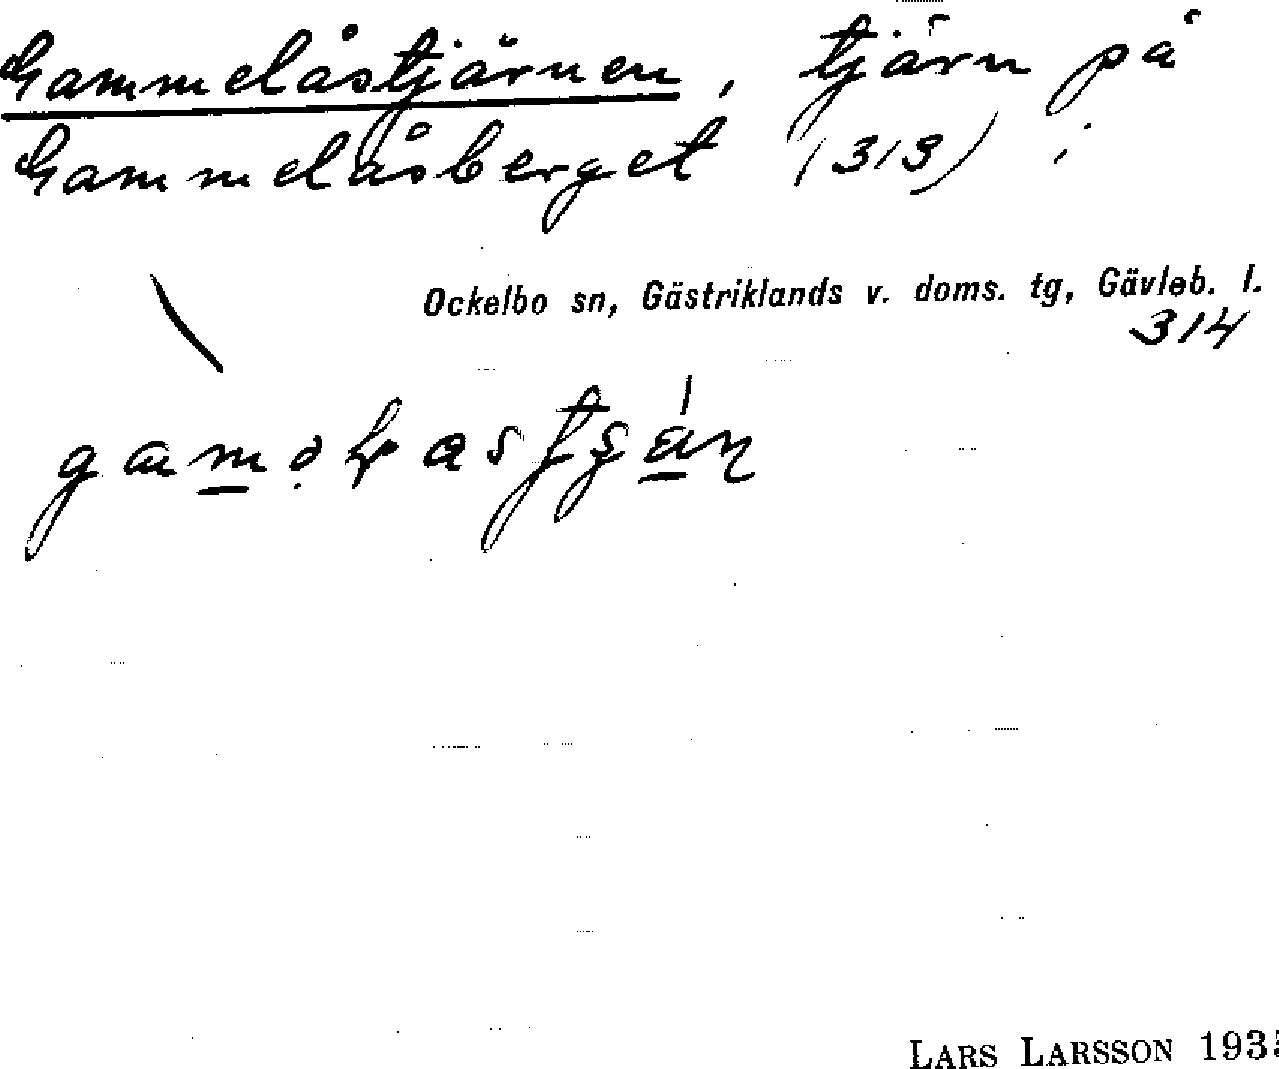 Gammelåstjärnen, tjärn på
Gammelåsberget (313);
Ockelbo sn, Gästriklands v. doms. tg, Gävleb. l.
314
LARS LARSSON 193